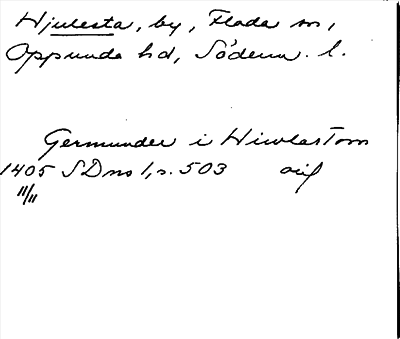 Hjulesta, by, Floda sn,
Oppunda hd, Söderm. l.
Germunder i Hiwlastom
1405 SD ns 1, s. 503 avf
11/11